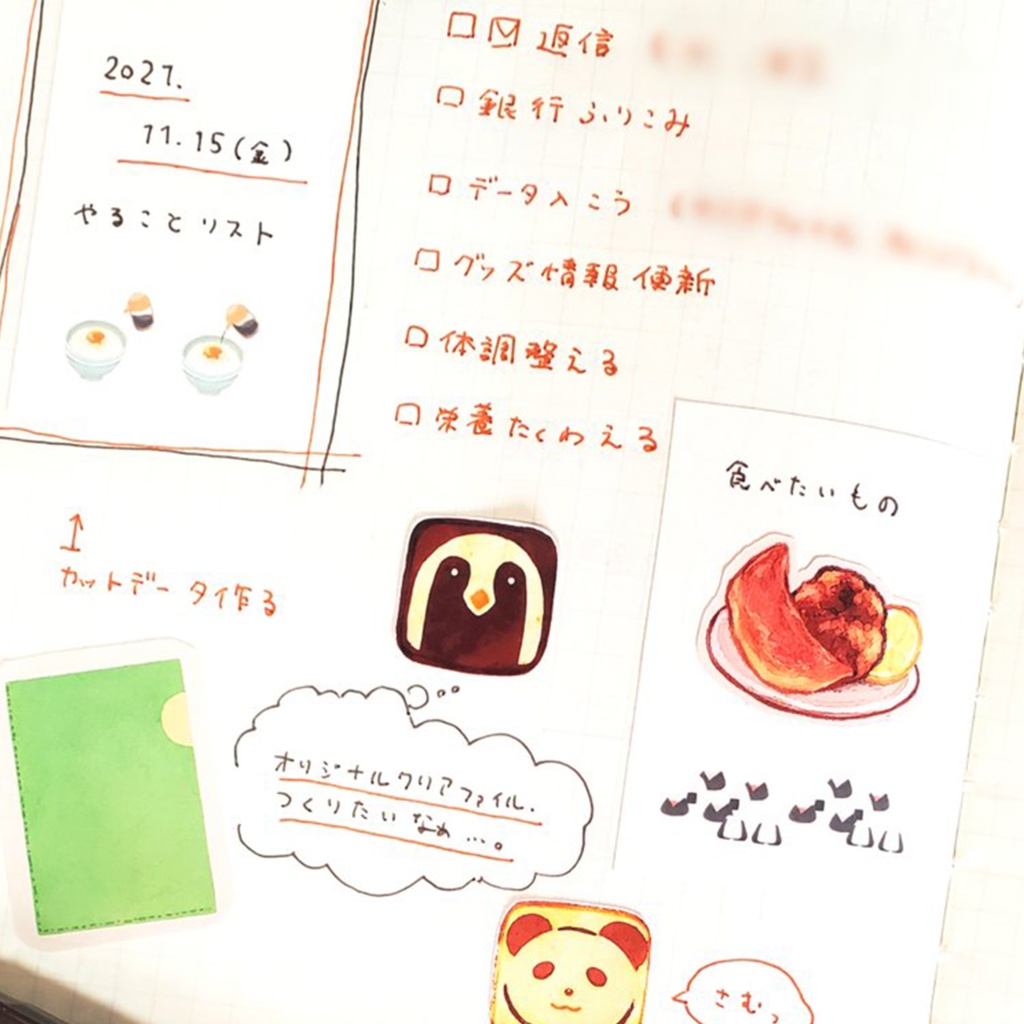 2021.
11.15(金)
やることリスト
□ 返信
□ 銀行ふりこみ
□ データ入こう
□ グッズ情報更新
□ 体調整える
□ 栄養たくわえる
↑
カットデータイ作る
食べたいもの
オリジナルクリアファイル.
つくりたいなぁ…。
さむっ